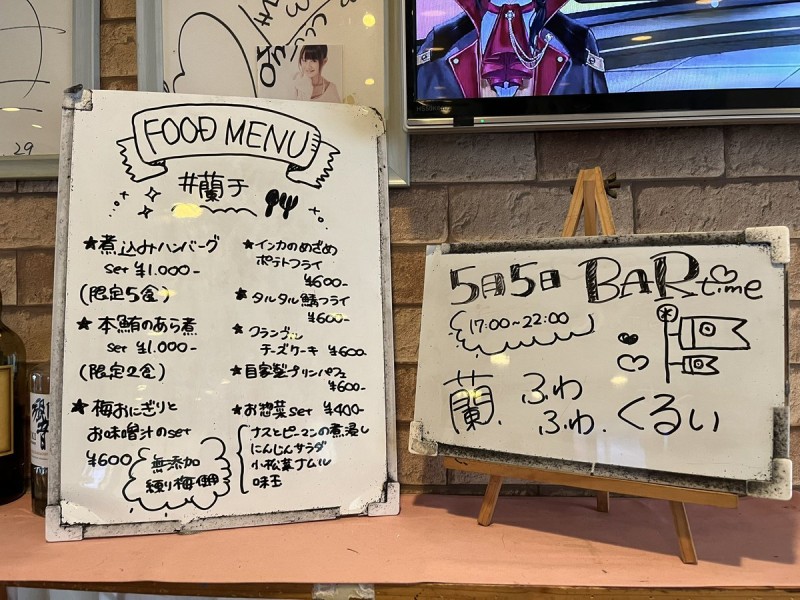 29
FOOD MENU
#蘭子
★煮込みハンバーグ
set ¥1.000-
(限定5食)
★本鮪のあら煮
set ¥1.000-
(限定2食)
★梅おにぎりと
お味噌汁のset
¥600
無添加
練り梅使用
★インカのめざめ
ポテトフライ
¥600-
★タルタル鯖フライ
¥600-
★クランブル
チーズケーキ ¥600-
★自家製プリンパフェ
¥600-
★お惣菜set ¥400-
ナスとピーマンの煮浸し
にんじんサラダ
小松菜ナムル
味玉
5月5日 BAR time
17:00~22:00
蘭、ふわふわ、くるい